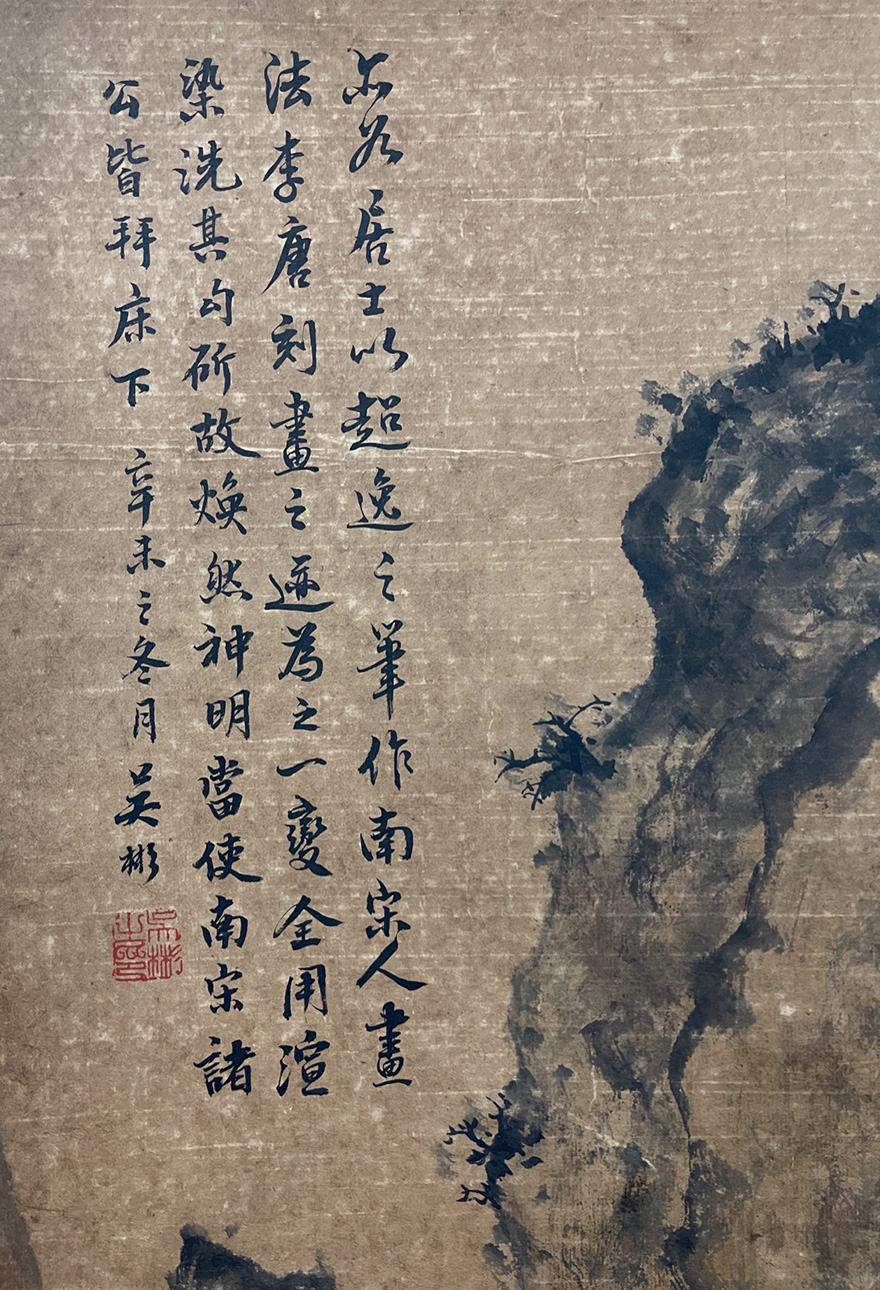 尒然居士以超逸之筆作南宋人畫
法李唐刻畫之迹為之一變全用渲
染洗其勾斫故煥然神明當使南宋諸
公皆拜床下 辛未之冬月 吴彬
吳彬之印